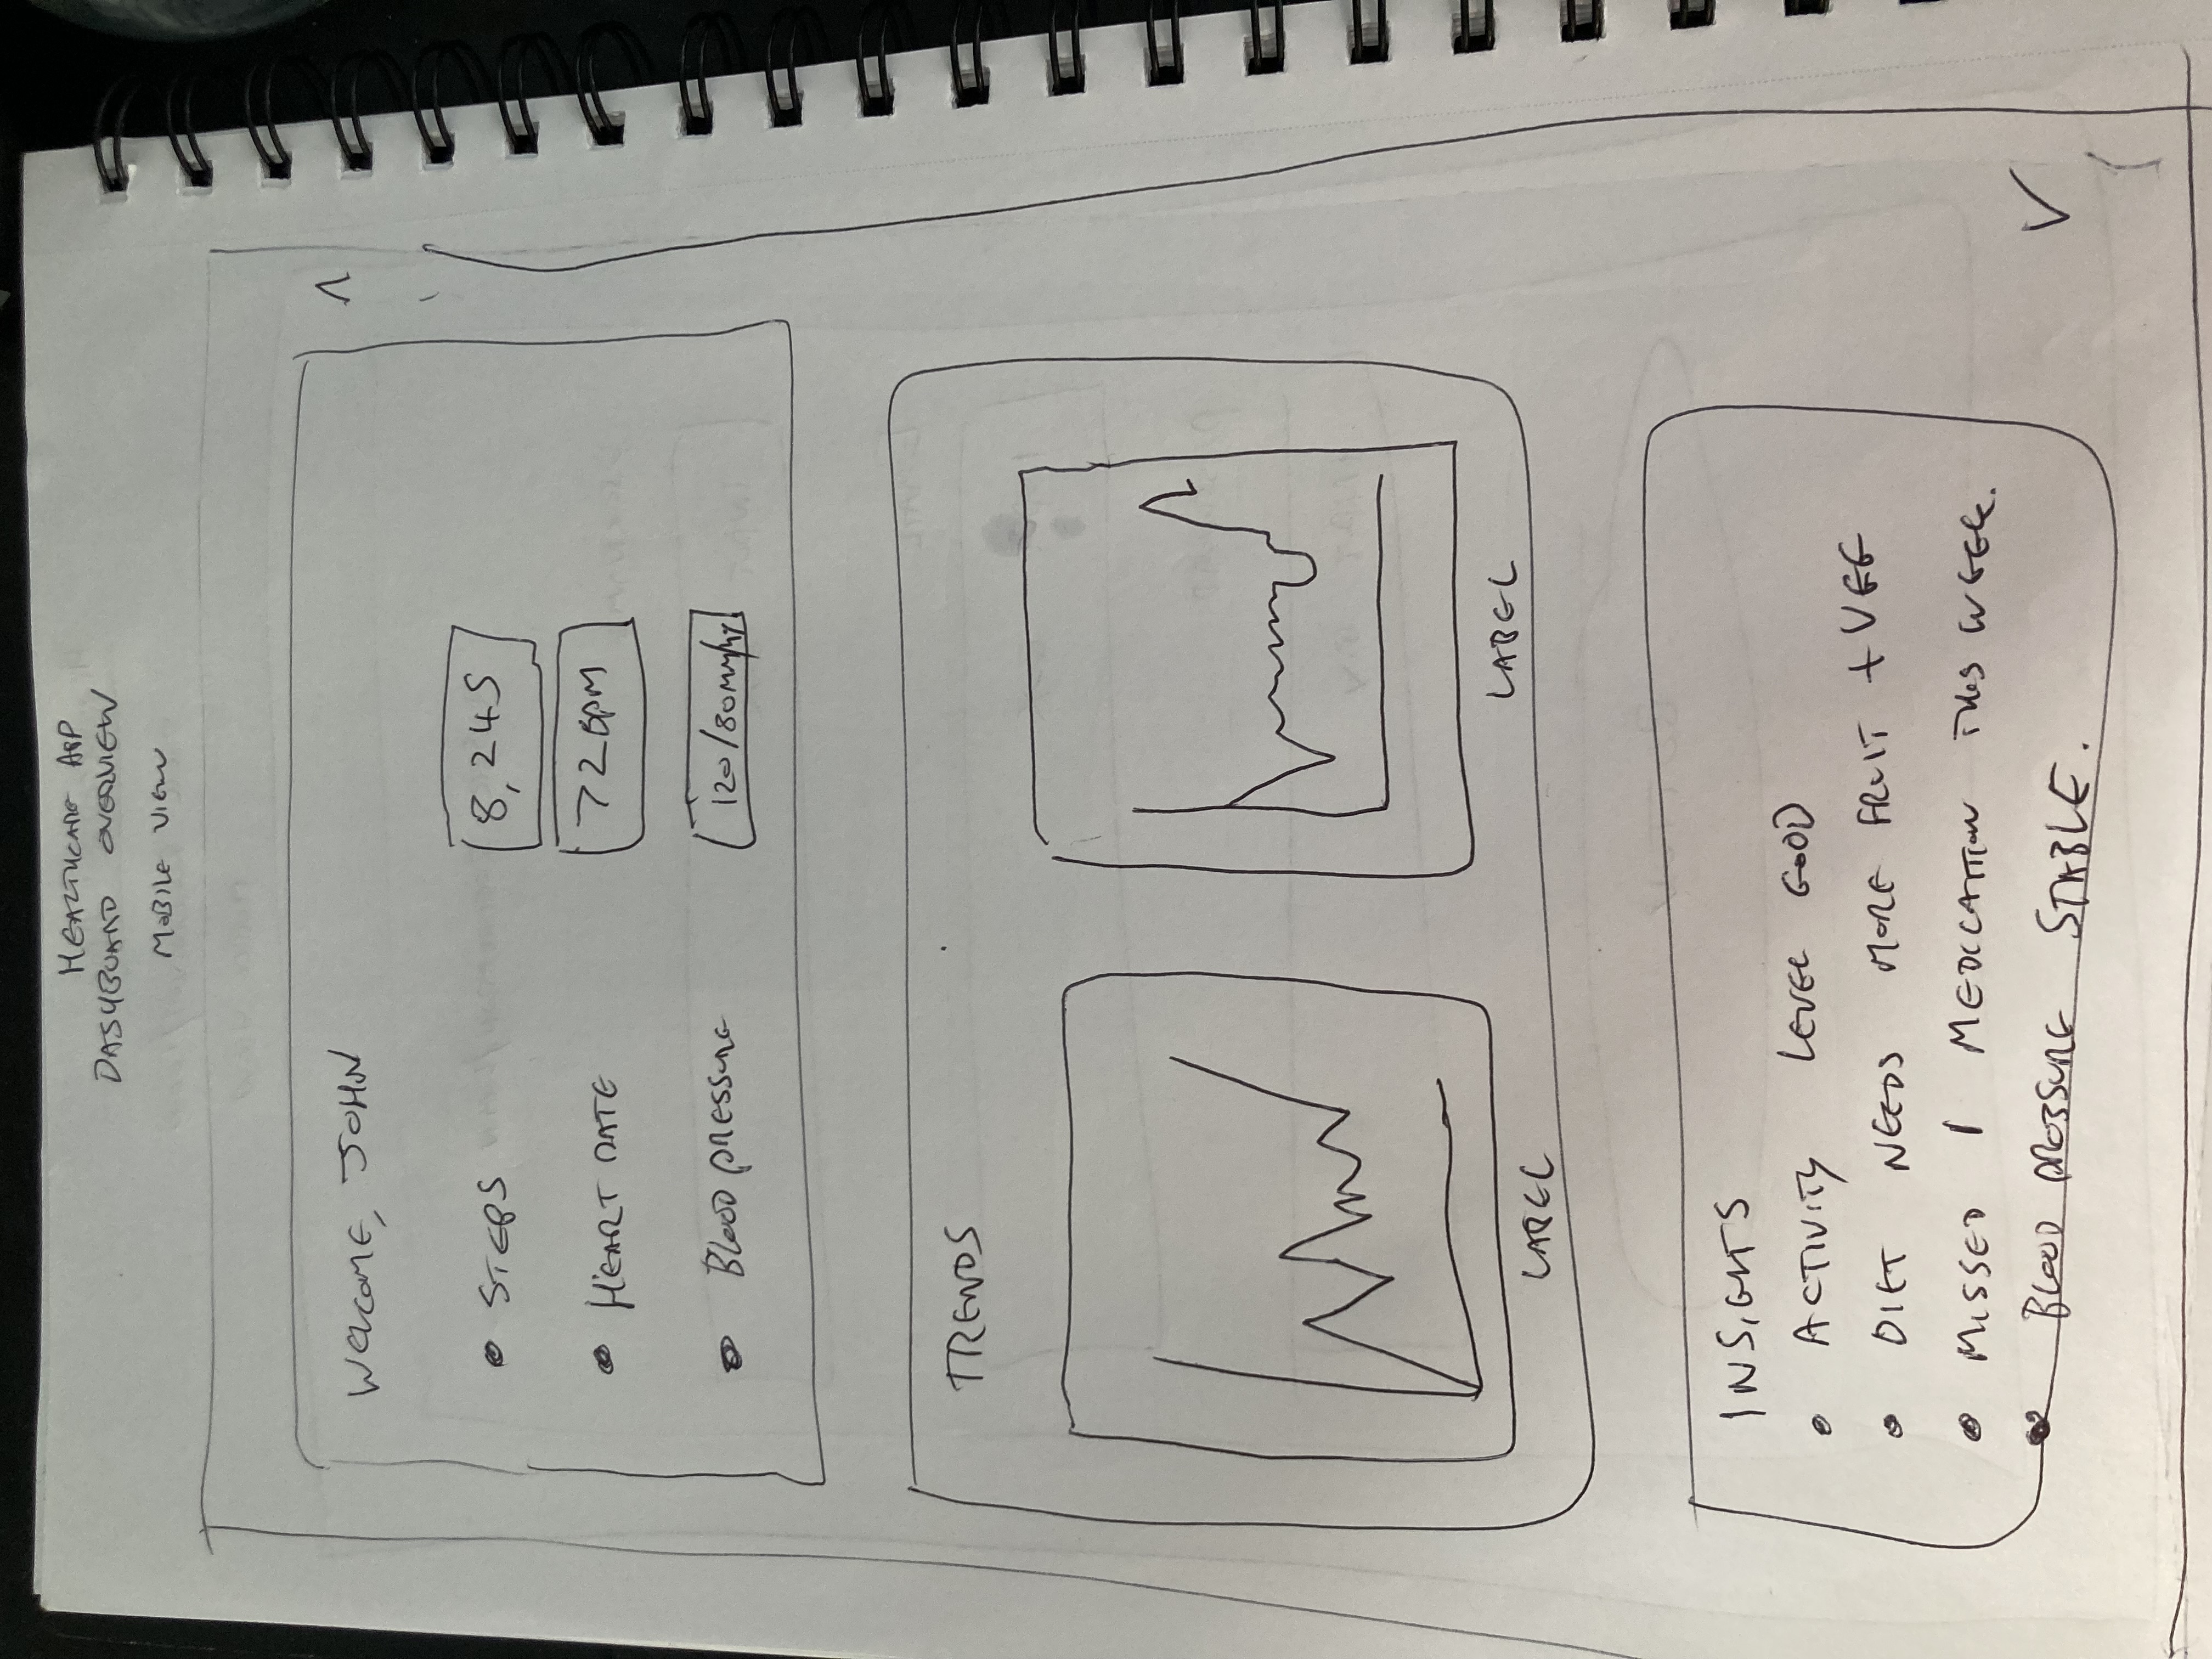 HEALTHCARE APP
DASHBOARD OVERVIEW
MOBILE VIEW
WELCOME, JOHN
STEPS 8,245
HEART RATE 72BPM
BLOOD PRESSURE 120/80MM/HG
TRENDS
LABEL
LABEL
INSIGHTS
ACTIVITY LEVEL GOOD
DIET NEEDS MORE FRUIT + VEG
MISSED 1 MEDICATION THIS WEEK.
BLOOD PRESSURE STABLE.